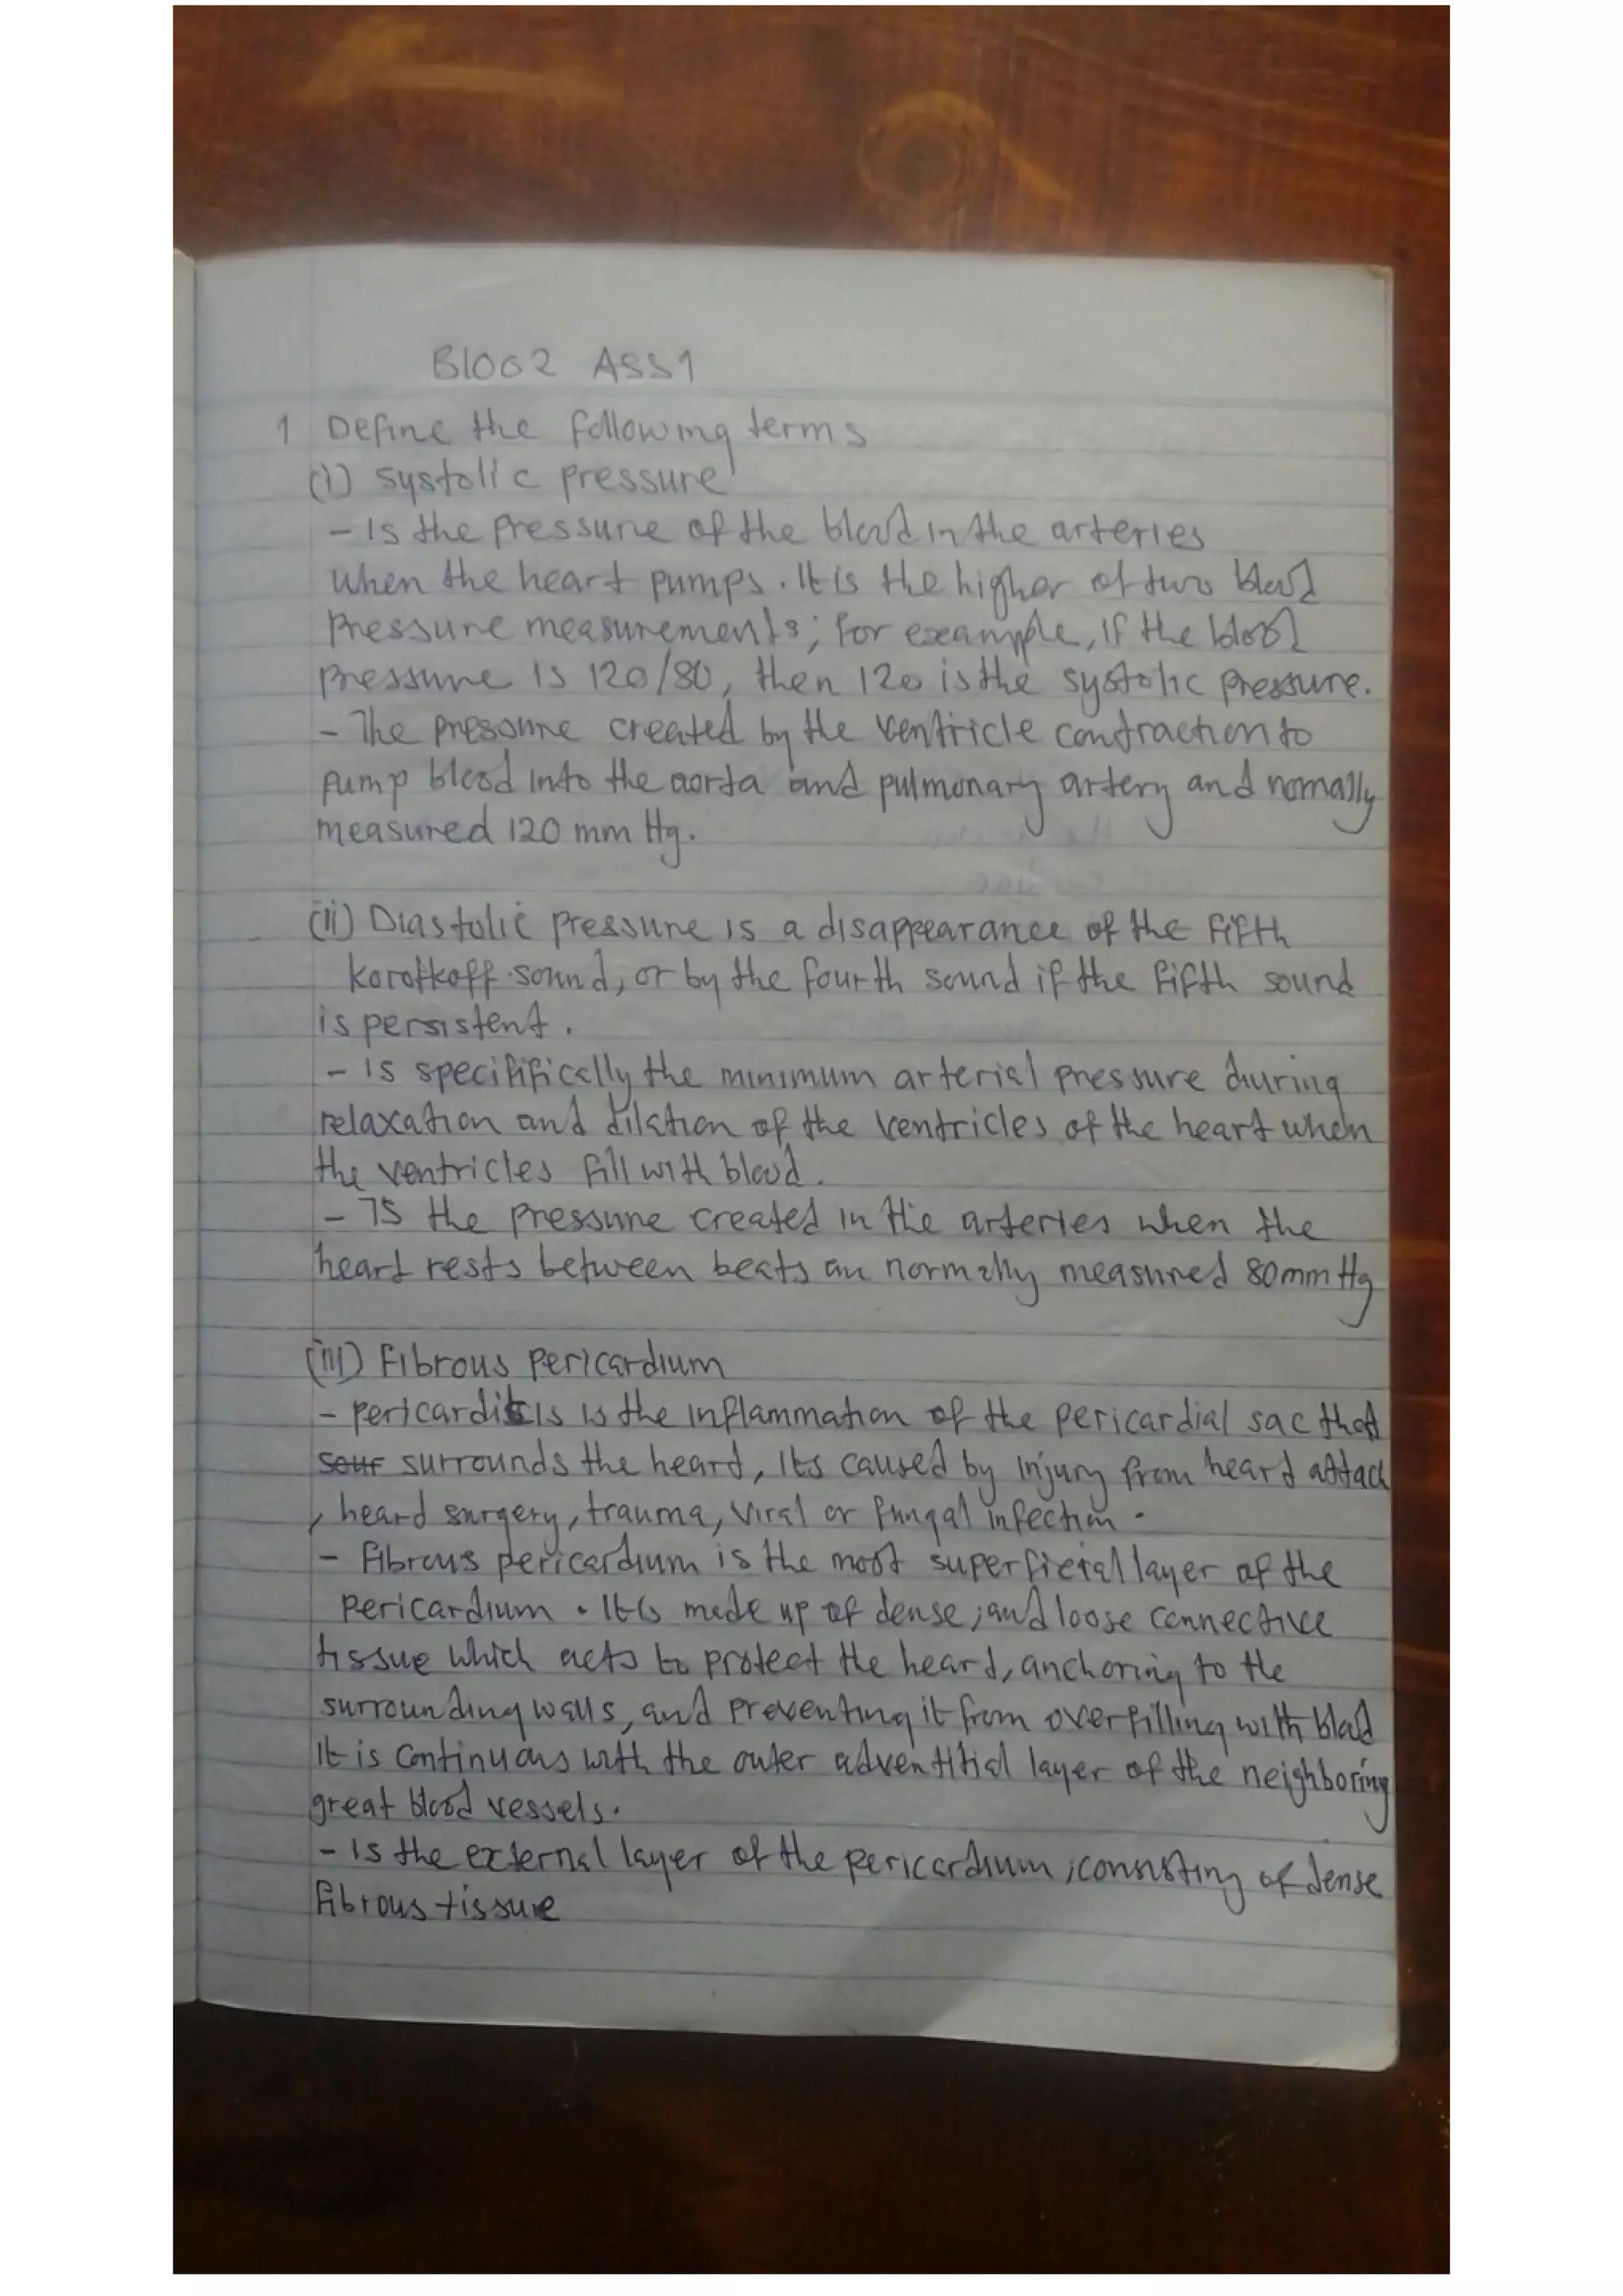 BIO02 ASS1
1 Define the following terms
(i) systolic pressure
- Is the pressure of the blood in the arteries
when the heart pumps. It is the higher of two blood
pressure measurements; for example, if the blood
pressure is 120/80, then 120 is the systolic pressure.
- The pressure created by the ventricle contraction to
pump blood into the aorta and pulmonary artery and nomally
measured 120 mm Hg.
(ii) Diastolic pressure is a disappearance of the fifth
korotkoff sound, or by the fourth sound if the fifth sound
is persistent.
- is specifically the minimum arterial pressure during
relaxation and dilation of the ventricles of the heart when
the ventricles fill with blood.
- Is the pressure created in the arteries when the
heart rests between beats an normally measured 80mm Hg
(iii) Fibrous pericardium
- pericarditis is the inflammation of the pericardial sac that
sour surrounds the heard, its caused by injury from heard attack
, heard surgery, trauma, viral or fungal infection.
- fibrous pericardium is the most superficial layer of the
pericardium. It is made up of dense, and loose connective
tissue which acts to protect the heard, anchoring to the
surrounding walls, and preventing it from overfilling with blood
It is continuous with the outer adventitial layer of the neighboring
great blood vessels.
- is the external layer of the pericardium, consisting of dense
fibrous tissue